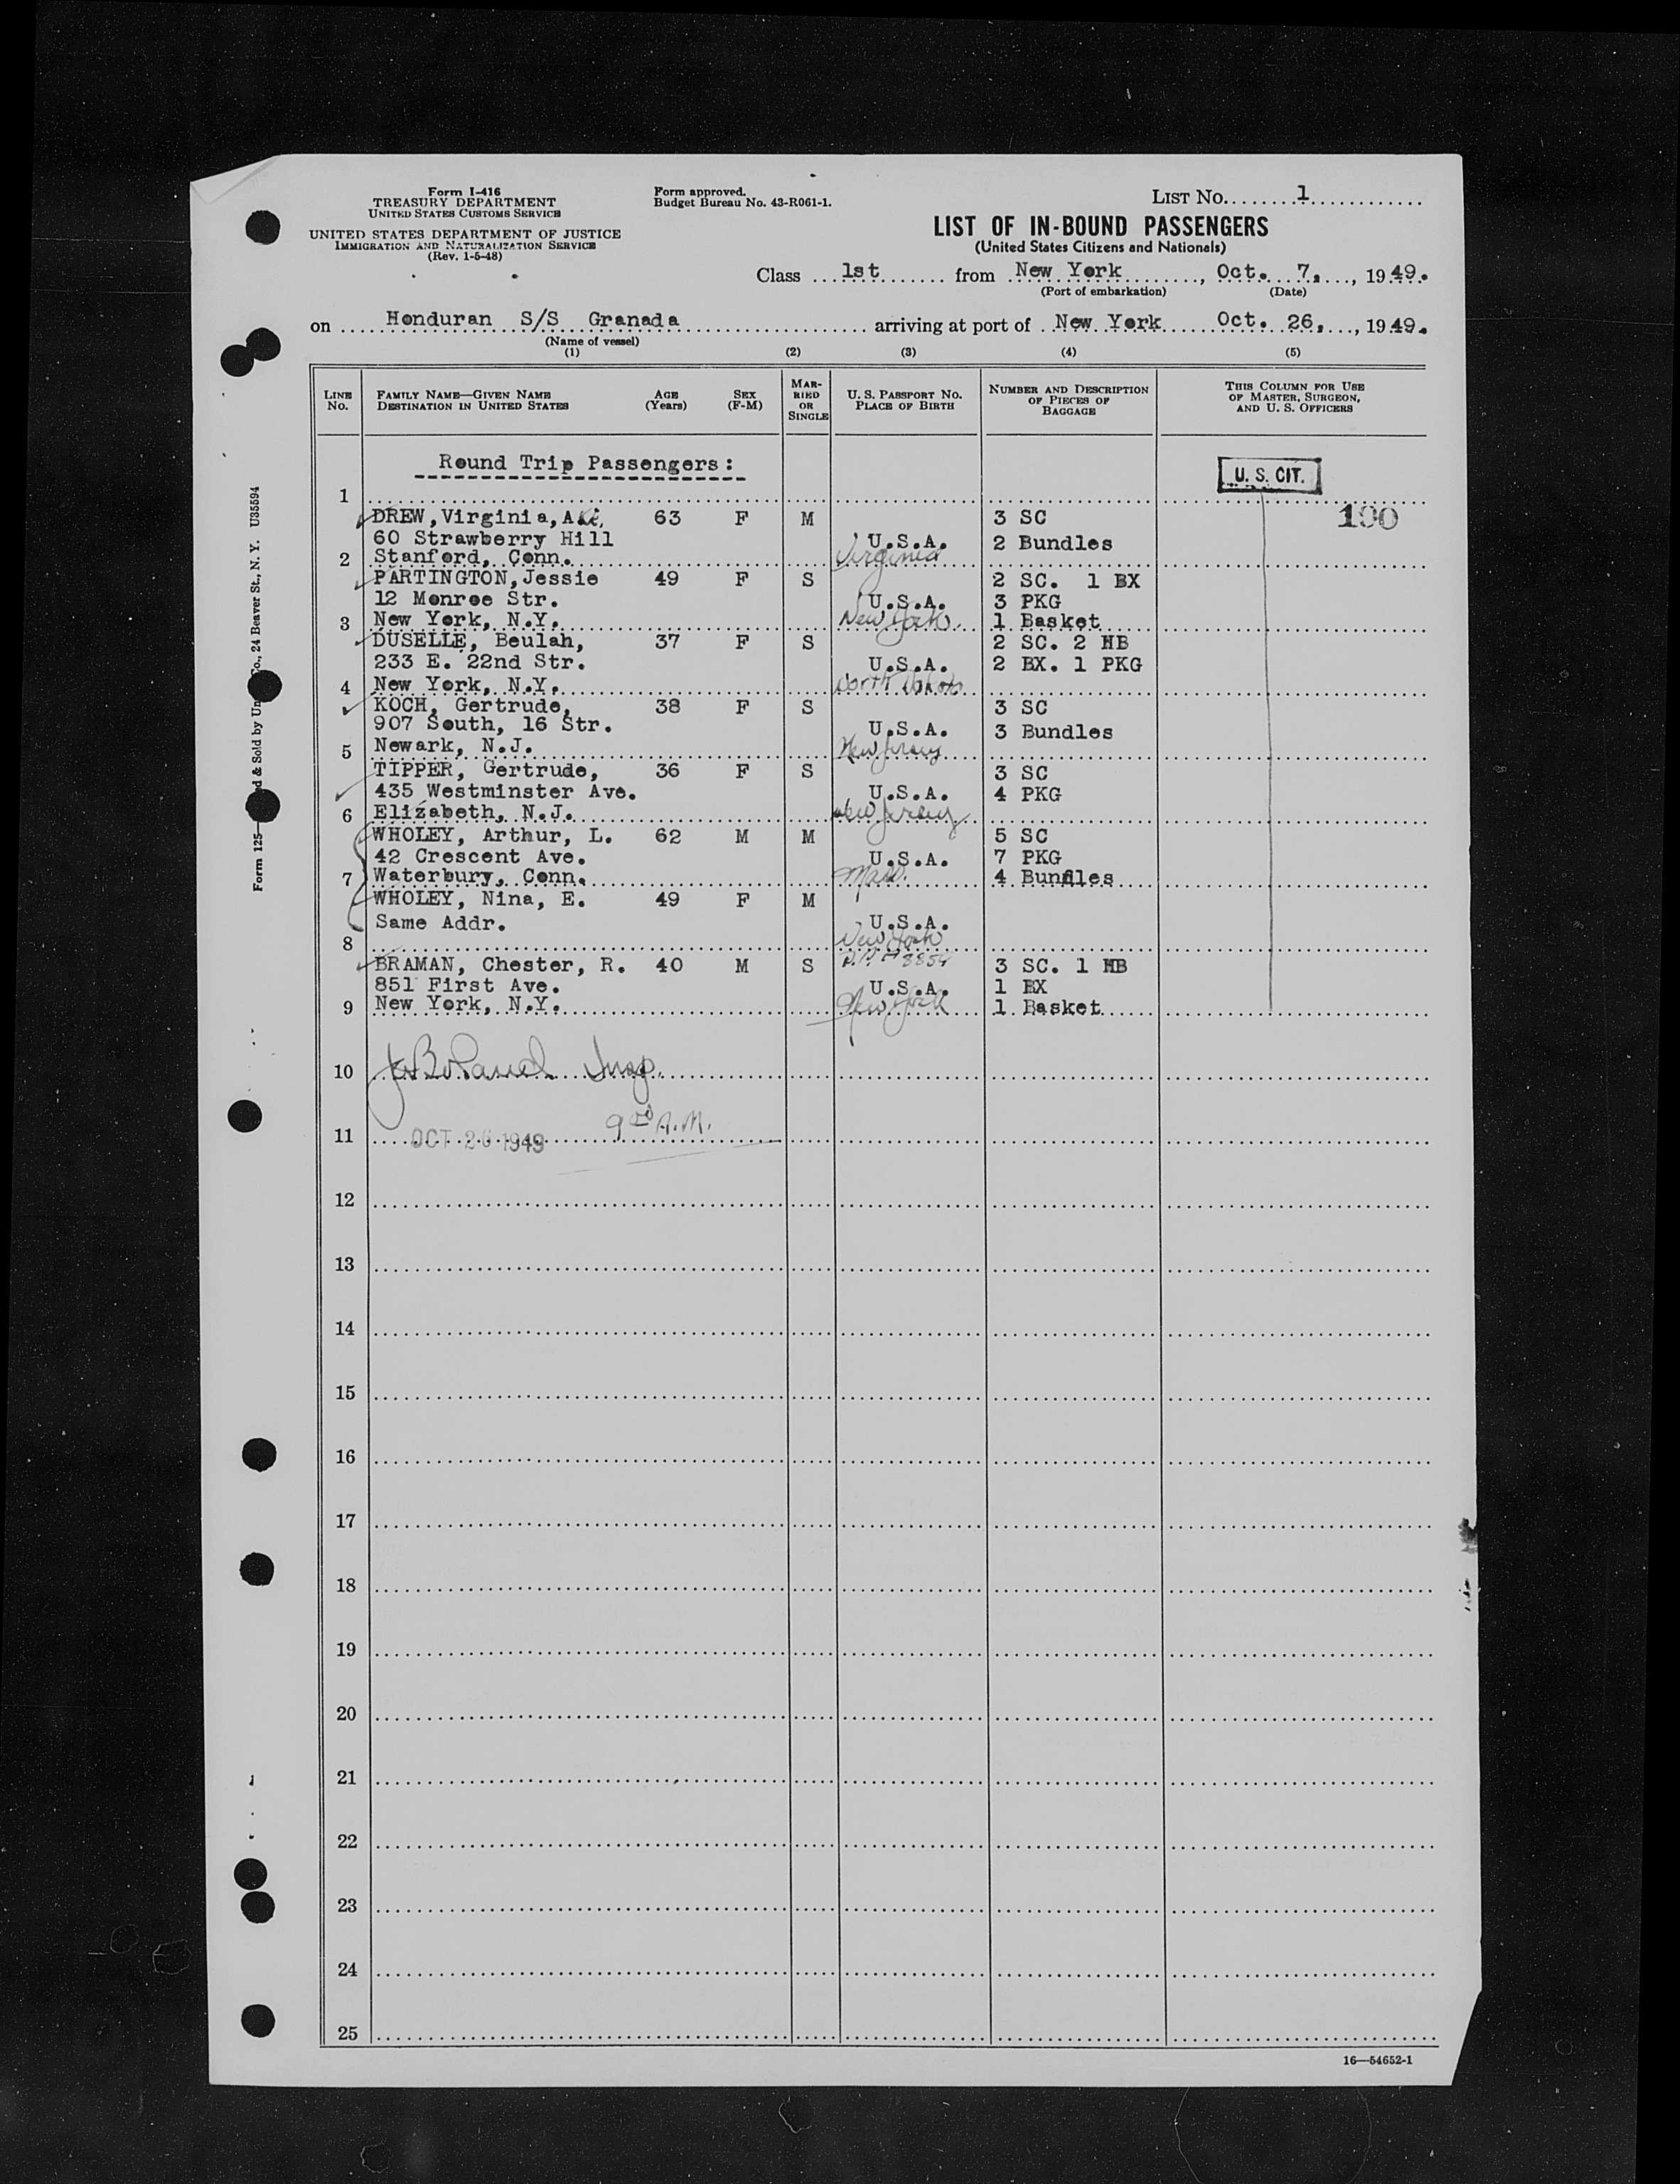 Form I-416
TREASURY DEPARTMENT
UNITED STATES CUSTOMS SERVICE
UNITED STATES DEPARTMENT OF JUSTICE
IMMIGRATION AND NATURALIZATION SERVICE
(Rev. 1-5-48)
Form approved.
Budget Bureau No. 43-R061-1.
LIST No. 1
LIST OF IN-BOUND PASSENGERS
(United States Citizens and Nationals)
Class 1st from New York, Oct. 7, 1949.
(Port of embarkation) (Date)
on Honduran S/S Granada arriving at port of New York Oct. 26, 1949.
(Name of vessel)
(1) (2) (3) (4) (5)
LINE No. FAMILY NAME—GIVEN NAME DESTINATION IN UNITED STATES AGE (Years) SEX (F-M) MARRIED OR SINGLE U. S. PASSPORT No. PLACE OF BIRTH NUMBER AND DESCRIPTION OF PIECES OF BAGGAGE THIS COLUMN FOR USE OF MASTER, SURGEON, AND U. S. OFFICERS
Round Trip Passengers:
U. S. CIT.
1
DREW, Virginia, 63 F M 3 SC 100
60 Strawberry Hill U.S.A. 2 Bundles
2 Stanford, Conn. Virginia
PARTINGTON, Jessie 49 F S 2 SC. 1 BX
12 Monroe Str. U.S.A. 3 PKG
3 New York, N.Y. New York. 1 Basket
DUSELLE, Beulah, 37 F S 2 SC. 2 HB
233 E. 22nd Str. U.S.A. 2 BX. 1 PKG
4 New York, N.Y. North Dakota
KOCH, Gertrude, 38 F S 3 SC
907 South, 16 Str. U.S.A. 3 Bundles
5 Newark, N.J. New Jersey
TIPPER, Gertrude, 36 F S 3 SC
435 Westminster Ave. U.S.A. 4 PKG
6 Elizabeth, N.J. New Jersey
WHOLEY, Arthur, L. 62 M M 5 SC
42 Crescent Ave. U.S.A. 7 PKG
7 Waterbury, Conn. Mass. 4 Bundles
WHOLEY, Nina, E. 49 F M
Same Addr. U.S.A.
8 New York
BRAMAN, Chester, R. 40 M S 3 SC. 1 HB
851 First Ave. U.S.A. 1 BX
9 New York, N.Y. New York 1 Basket
10 Insp.
9 00 A.M.
11 OCT 26 1949
12
13
14
15
16
17
18
19
20
21
22
23
24
25
16—54652-1
Form 125— d & Sold by Un Co., 24 Beaver St., N. Y. U35594